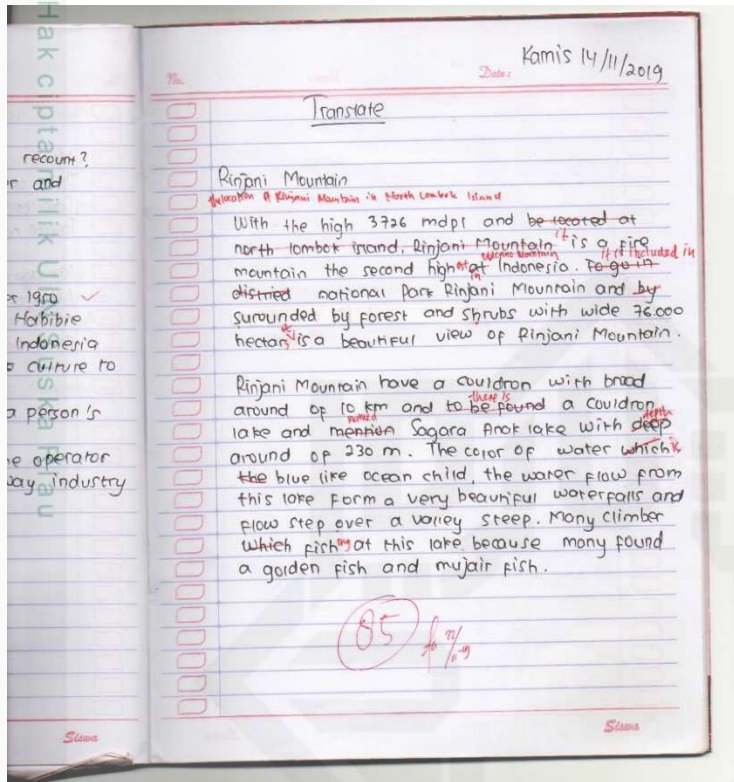 Hak cipta milik UIN Suska Riau
recount?
r and
r 1950
Habibie
Indonesia
s culture to
a person is
e operator
way industry
Siswa
No.
Date: Kamis 14/11/2019
Translate
Rinjani Mountain
The location of Rinjani Mountain in North Lombok Island
With the high 3726 mdpl and be located at
north lombok island, Rinjani Mountain it is a fire
volcano Mountain it is included in
mountain the second high est in at Indonesia. To go in
distried national park Rinjani Mountain and by
surounded by forest and shrubs with wide 76.000
hectar, it is a beautiful view of Rinjani Mountain.
Rinjani Mountain have a couldron with broad
there is
around of 10 km and to be found a couldron
named depth
lake and mention Sagara Anak lake with deep
around of 230 m. The color of water which is
the blue like ocean child, the water flow from
this lake form a very beautiful waterfalls and
flow step over a valley steep. Many climber
which fish ing at this lake because many found
a golden fish and mujair fish.
85
Siswa